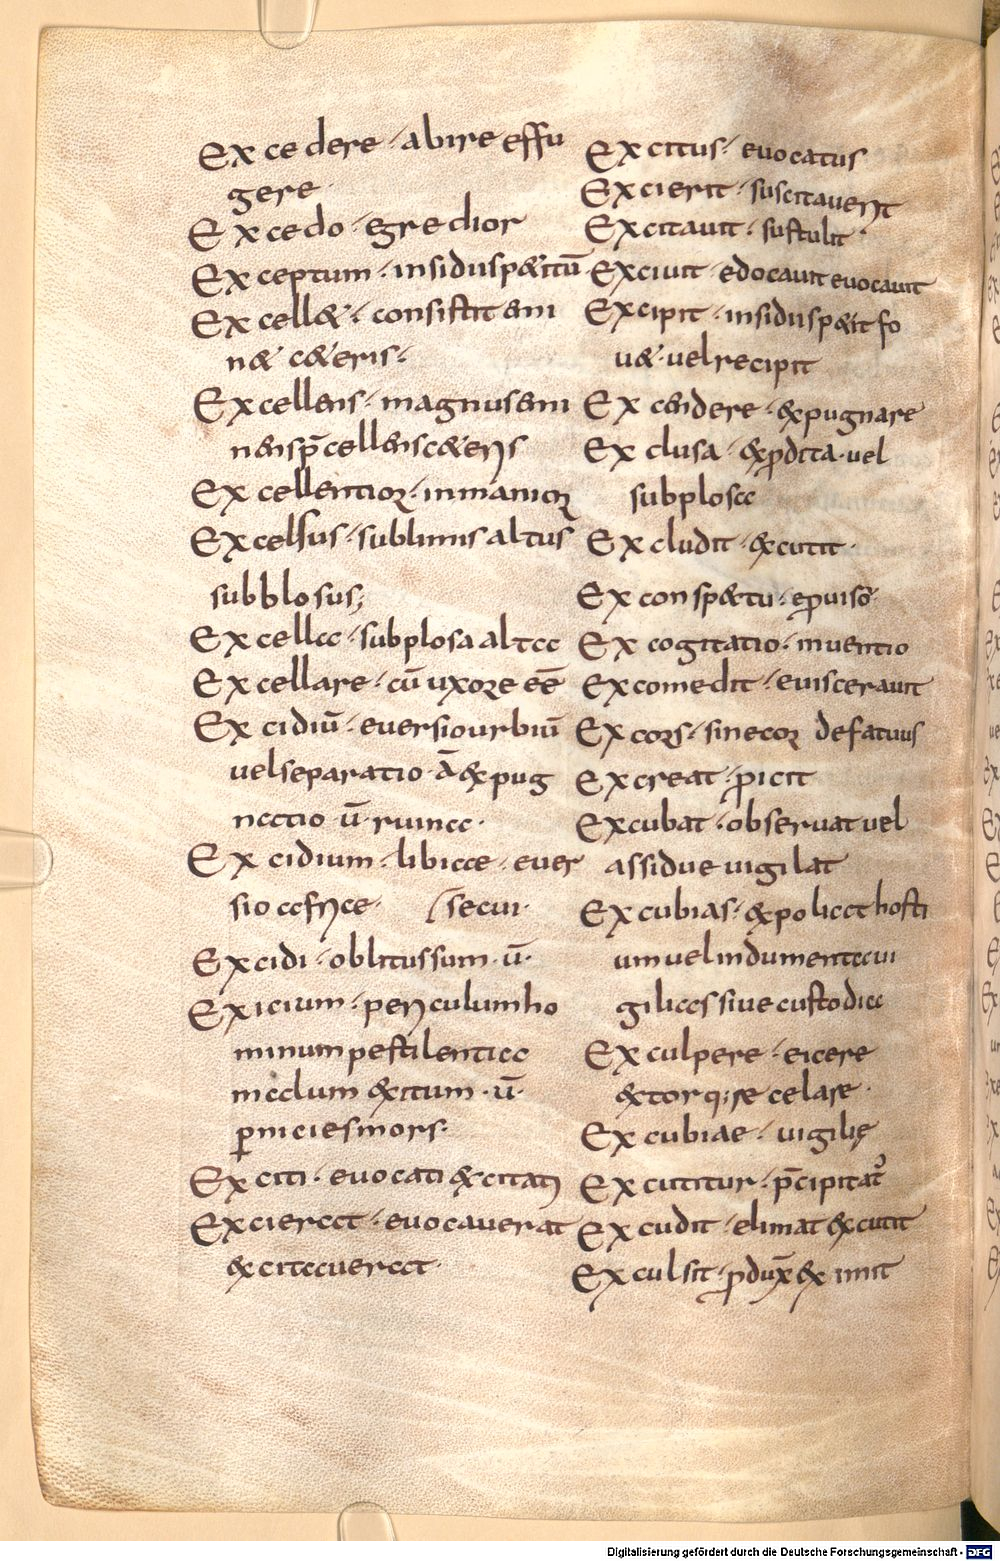 Excedere · abire effu
gere ·
Excedo · egredior
Exceptum · insidiisp&itū
Excell& · consistit emi
n& c&eris ·
Excellens · magnus emi
nens p̄cellens c&eris
Excellentior · inmanior
Excelsus · sublimis altus
subblosus;
Excella · subplosa alta
Excellare · cū uxore eē
Excidiū · euersio urbiū
uel separatio · ā &pug
natio · ū · ruina ·
Excidium · libicae · euer
sio africe ·
Excidi · oblitus sum · ū · (secui ·
Exicium · periculum ho
minum pestilentia
malum &itum · ū ·
p̱nicies mors ·
Exciti · euocati &citati
Excierat · euocauerat
&citauerat ·
Excitus · euocatus
Excierit · suscitauerit
Excitauit · sustulit ·
Exciuit · edocauit euocauit
Excipit · insidiisp&it fo
u& · uel recipit
Excendere · &pugnare
Exclusa · &p̱dita · uel
subplosa
Excludit · &cutit ·
Ex consp&tu · ep̱uisō ·
Excogitatio · inuentio
Excomedit · euiscerauit
Excors · sine cor defatuus
Excreat · p̱icit
Excubat · obseruat uel
assidue uigilat
Excubias · &polia hosti
um uel indumenta ui
gilias siue custodia
Exculpere · eicere
&torq;re celare ·
Excubiae · uigilię
Excutitur · p̄cipitat᷒
Excudit · elimat &cutit
Exculsit · p̱dux̄ & imit
Digitalisierung gefördert durch die Deutsche Forschungsgemeinschaft - DFG